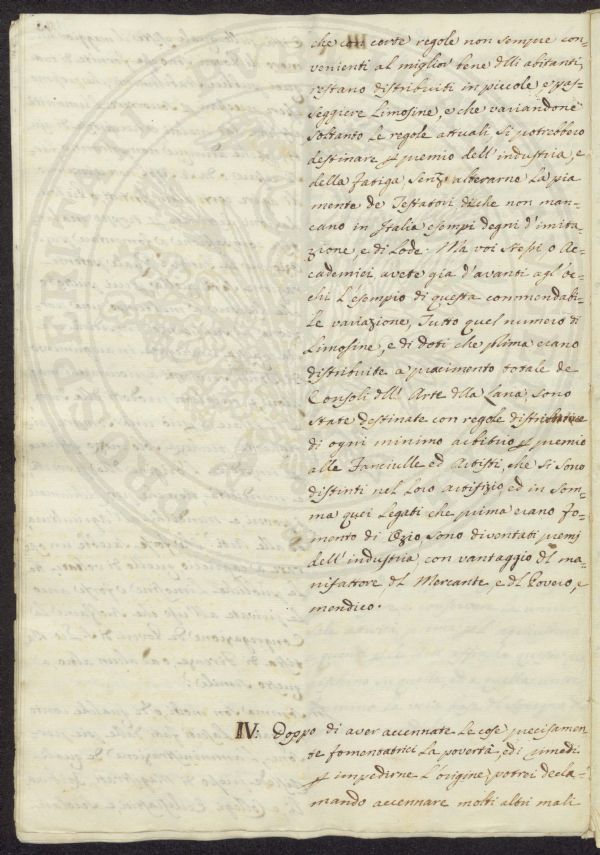 che con certe regole non sempre con=
venienti al miglior bene dlli abitanti,
restano distribuiti in piccole e pas=
seggiere Limosine, e che variandone
soltanto le regole attuali si potrebbero
destinare p premio dell'industria, e
della fatiga, senz'alterarne la pia
mente de Testatori, di che non man=
cano in Italia esempi degni d'imita=
zione, e di Lode. Mà voi stessi o Ac=
cademici avete gia d'avanti agl'oc=
chi L'esempio di questa commendabi=
le variazione, Tutto quel numero di
Limosine, e di doti che prima erano
distribuite a piacimento totale de
Consoli dll'Arte dlla Lana, sono
state destinate con regole
di ogni minimo arbitrio p premio
alle Fanciulle ed Artisti, che si sono
distinti nel Loro artifizio, ed in som=
ma quei Legati che prima erano fo=
mento di Ozio, sono diventati premj
dell'industria con vantaggio dl ma=
nifattore dl Mercante, e dl Povero, e
mendico.
IV: Doppo di aver accennate Le cose precisamen
te fomentatrici La povertà, ed i rimedi
p impedirne L'origine, potrei decla=
mando accennare molti altri mali